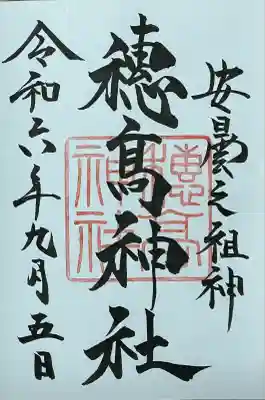 安曇之祖神
穂髙神社
令和六年九月五日
穂高
神社